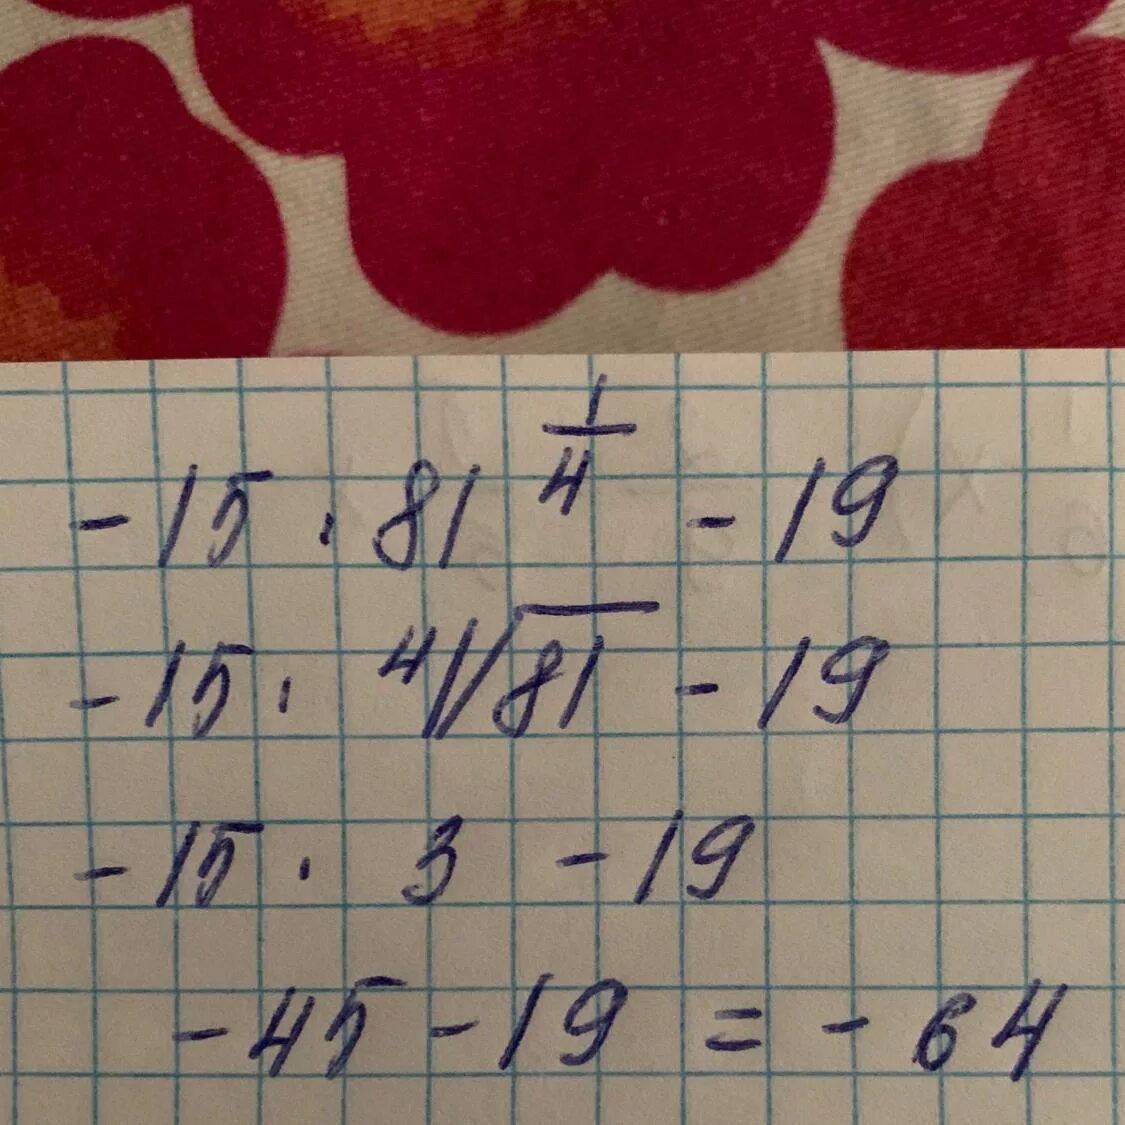 -15 · 81^(1/4) - 19
-15 · ⁴√81 - 19
-15 · 3 - 19
-45 - 19 = -64